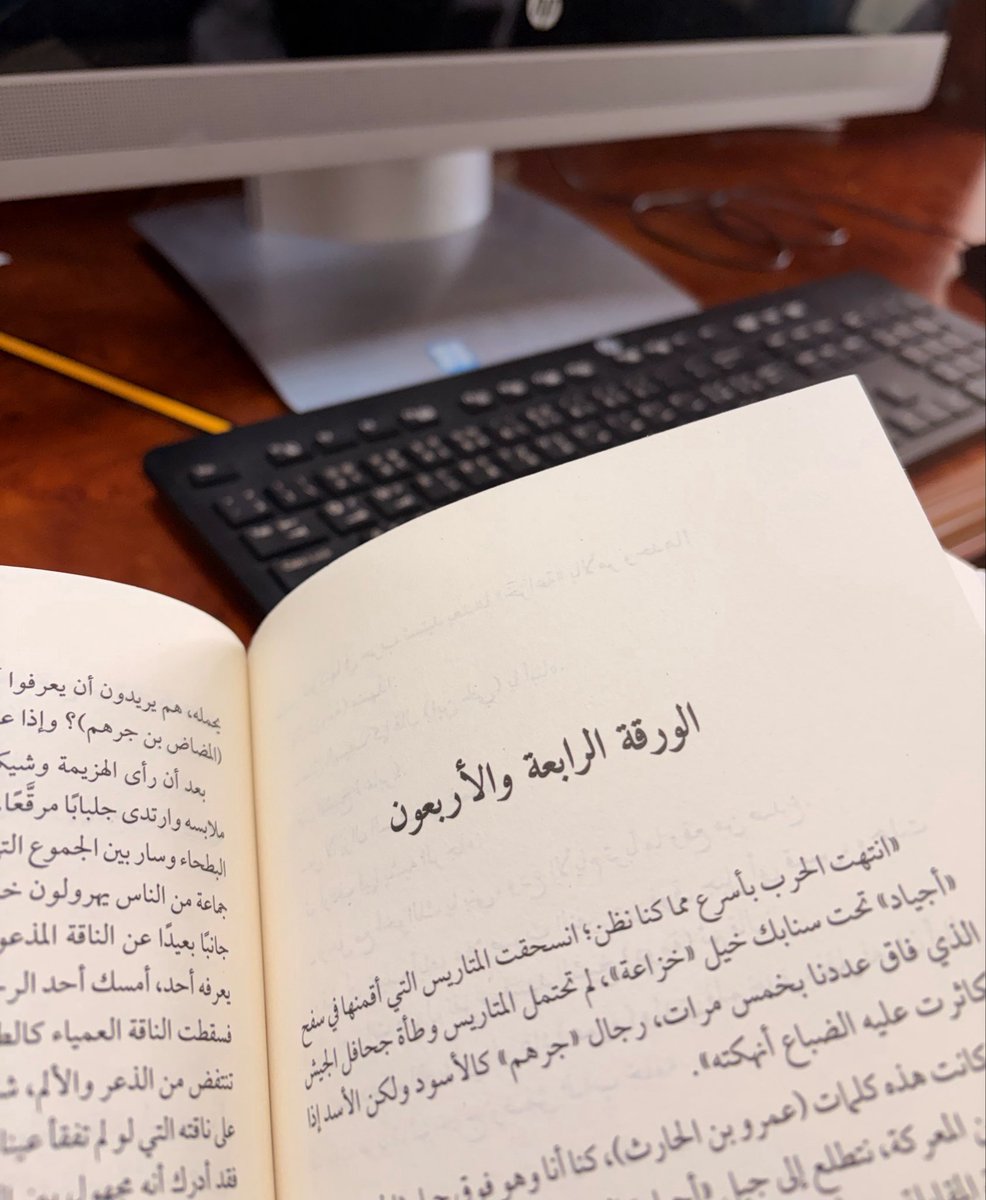 hp
الورقة الرابعة والأربعون
«انتهت الحرب بأسرع مما كنا نظن؛ انسحقت المتاريس التي أقمنها في سفح
«أجياد» تحت سنابك خيل «خزاعة»، لم تحتمل المتاريس وطأة جحافل الجيش
الذي فاق عددنا بخمس مرات، رجال «جرهم» كالأسود ولكن الأسد إذا
كاثرت عليه الضباع أنهكته».
كانت هذه كلمات (عمرو بن الحارث)، كنا أنا وهو فوق
المعركة، نتطلع إلى جبل
يحمله، هم يريدون أن يعرفوا
(المضاض بن جرهم)؟ وإذا
بعد أن رأى الهزيمة
ملابسه وارتدى جلبابًا مرقَّعًا
البطحاء وسار بين الجموع
جماعة من الناس يهرولون
جانبًا بعيدًا عن الناقة
يعرفه أحد، أمسك أحد
فسقطت الناقة العمياء
تنتفض من الذعر والألم،
على ناقته التي لو لم تفقأ
فقد أدرك أنه مجهول